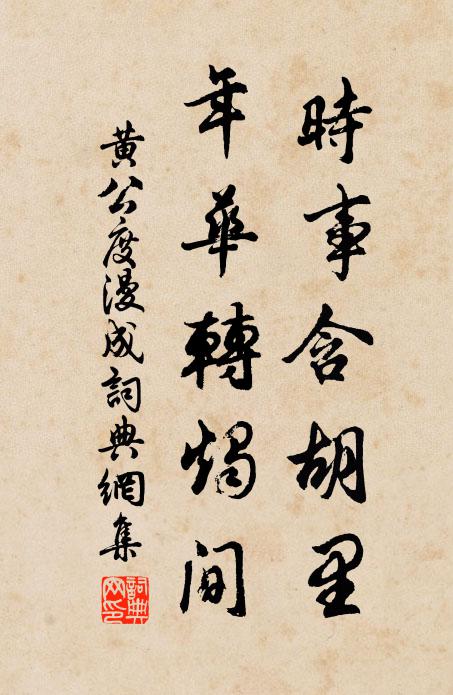 時事含胡里
年華轉燭間
黃公度漫成詞典網集
詞典網印